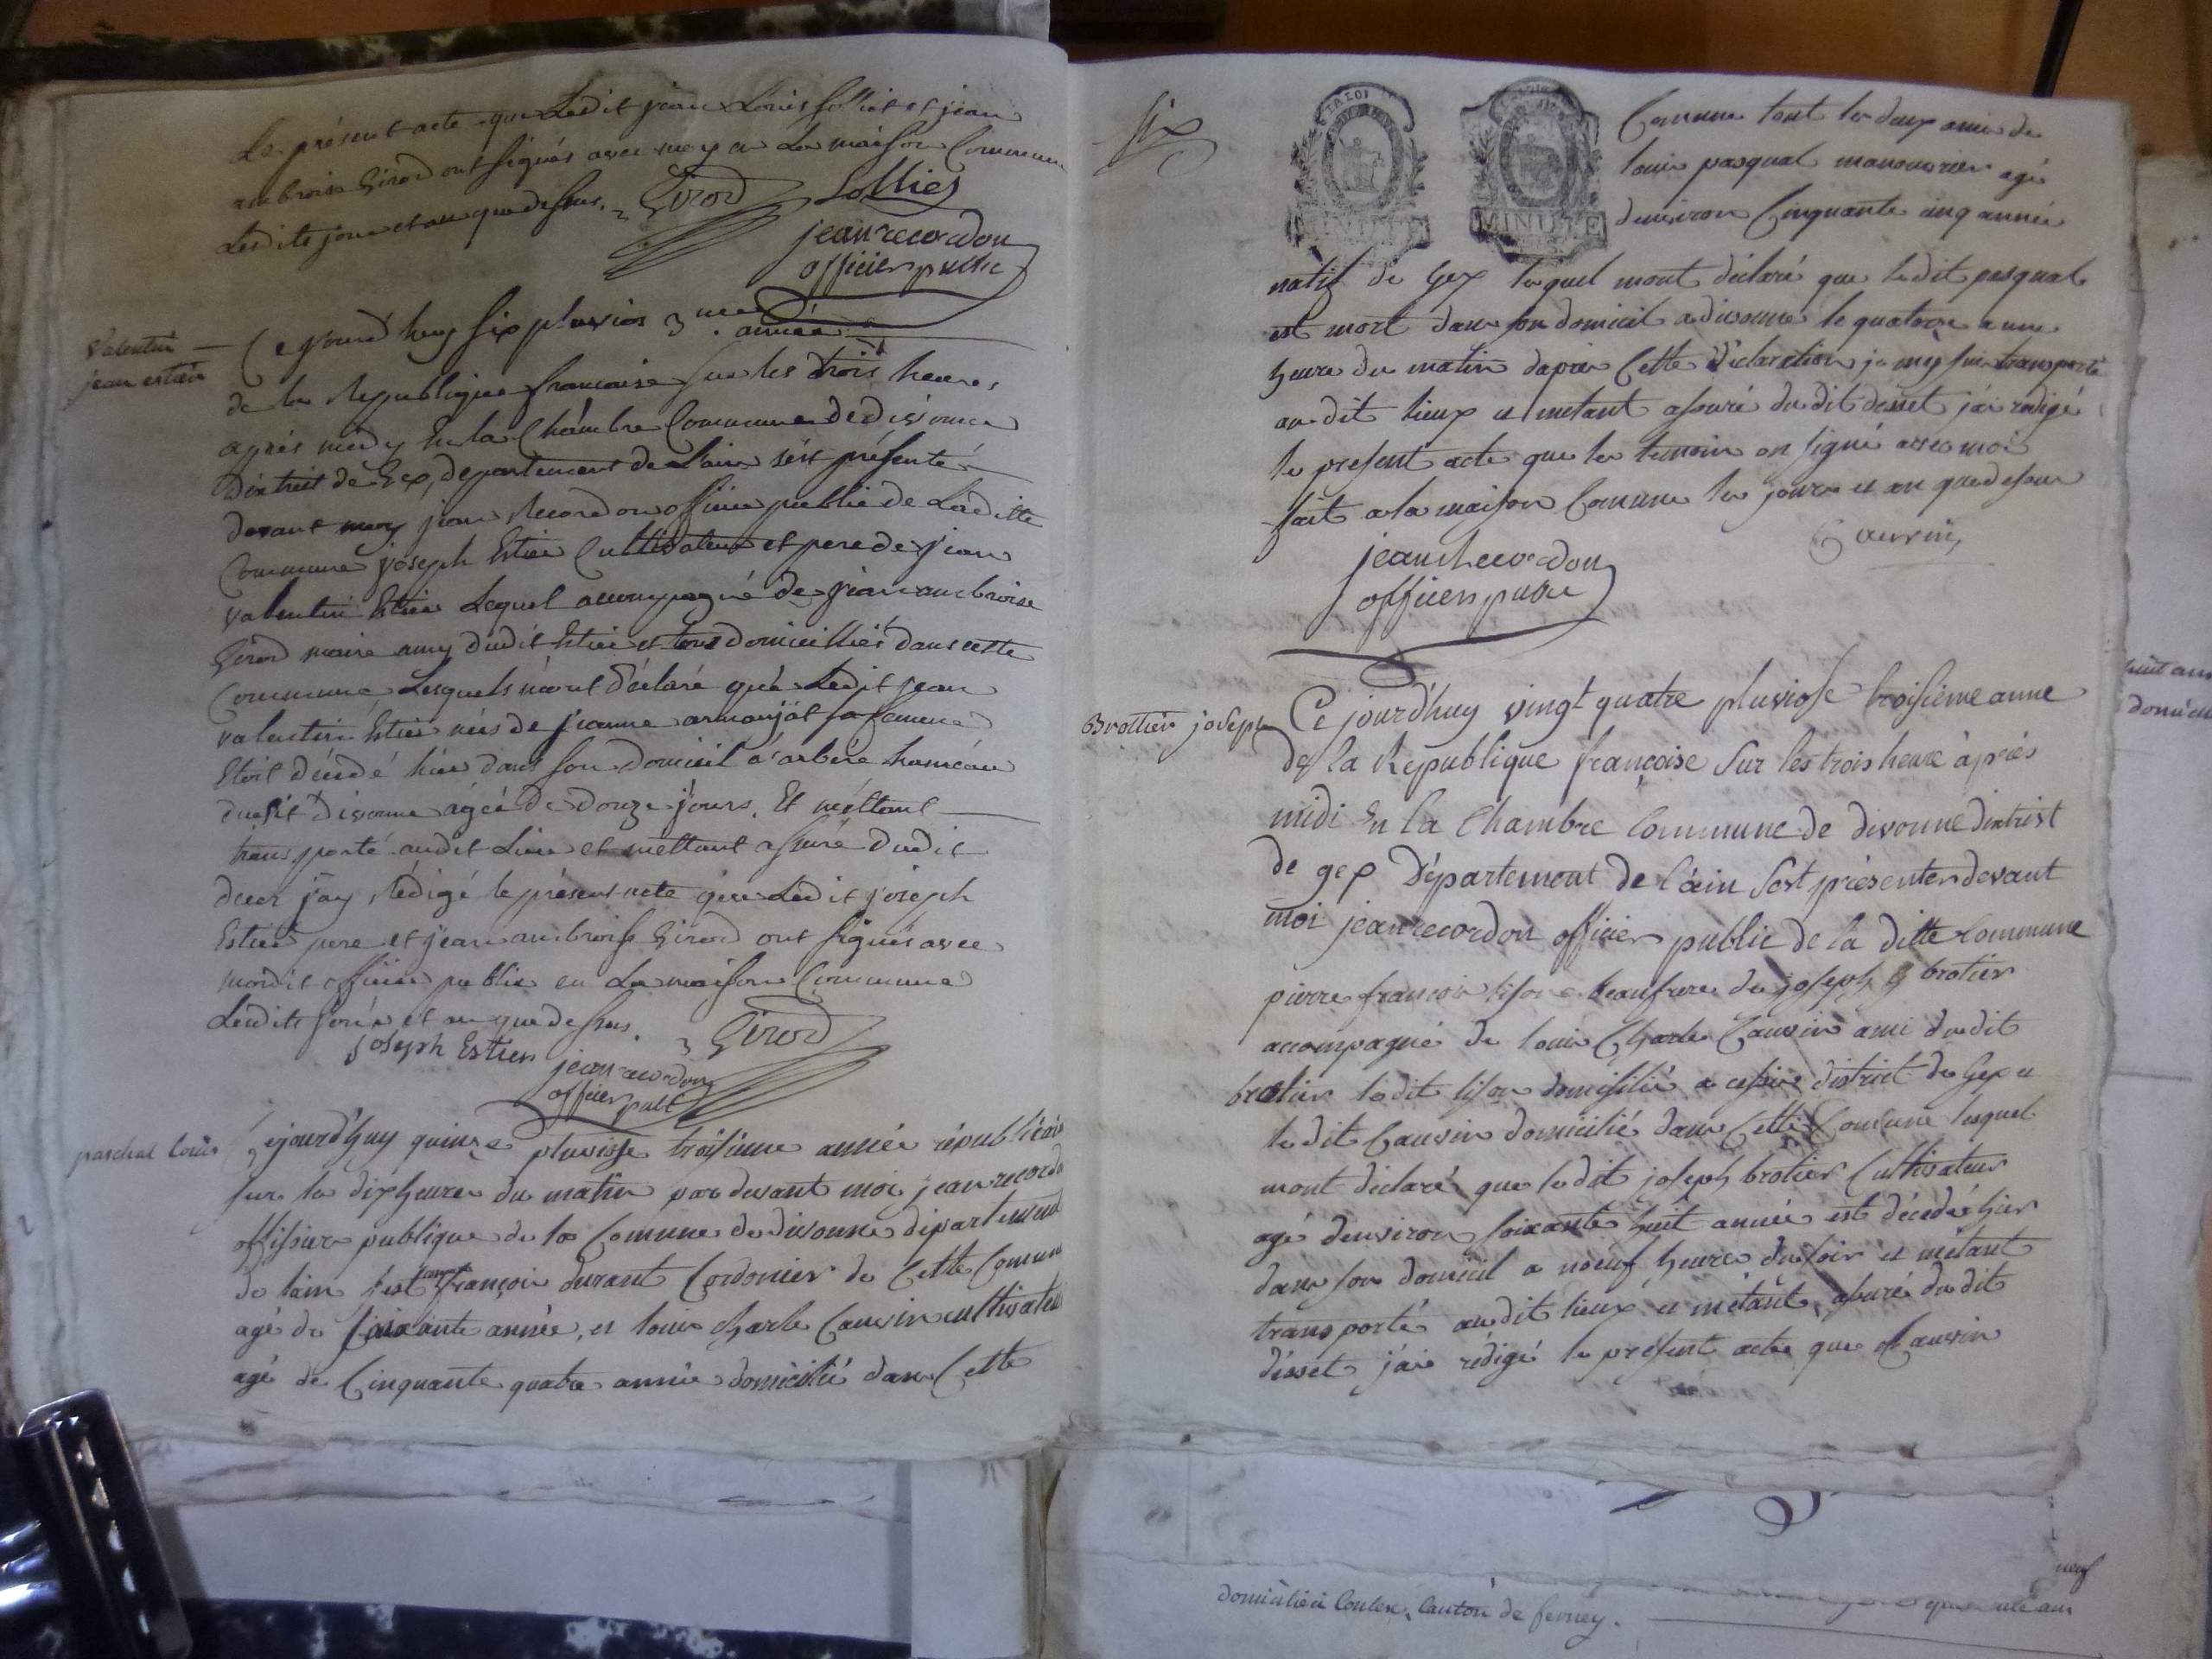 Le présent acte que Ledit jean Louis Solliet et jean
ambroise Girod ont signés avec moy en La maison Commune
Lesdits jour et an que dessus. Girod Solliet
jean recordon
officier public
Valentin
jean estier
Ce jourd'huy six pluvios 3me année
de la republique francaise sur les trois heures
apres midy En la Chambre Commune de divonne
district de Gex, departement de L'ain s'est présenté
devant moy jean Recordon officier public de Laditte
Commune joseph Estier Cultivateur et pere de jean
valentin Estier Lequel accompagné de jean ambroise
Girod maire amy dudit Estier et tous domiciliés dans cette
Commune Lesquels m'ont déclaré que Ledit jean
valentin Estier néis de jeanne armanjat sa femme
Etoit décédé hier dans son domicil a arbere hameau
dudit divonne agée de douze jours. Et mettant
transporté audit Lieu et mettant assuré dudit
deces j'ay Rédigé le présent acte que Ledit joseph
Estier pere et jean ambroise Girod ont signés avec
mondit officier public en La maison Commune
Lesdits jour et an que dessus.
joseph Estier Girod
jean recordon
officier public
paschal Louis
Cejourd'huy quinze pluviose troisieme année républicaine
sur la dix heures du matin par devant moi jean recordon
offisier publique de la Comune de divonne département
de lain s'est françois durant Cordonier de Cette Comune
agé de soixante année, et louis charle Cauvin cultivateur
agé de Cinquante quatre année domicilié dans Cette
six
MINUTE MINUTE
Comune tout les deux amis de
louis pasqual manouvrier agé
denviron Cinquante cinq année
natif de Gex lequel mont déclaré que ledit pasqual
est mort dans son domicil a divonne le quatorze a une
heure du matin dapres Cette déclaration je mey sui transporté
au dit lieux et metant assuré du dit desset jai redigé
le present acte que les temoin on signé avec moi
fait a la maison Comune les jour et an que dessus
Cauvin
jean Recordon
officier public
Brottier joseph
Ce jourd'huy vingt quatre pluviose troisieme anne
de la Republique françoise sur les trois heure après
midi En la Chambre Commune de divonne district
de gex Département de l'ain s'est présenter devant
moi jean recordon officier public de la ditte commune
pierre francois lison beaufrere de joseph brotier
accompagné de louis Charle Cauvin ami du dit
brotier le dit lison domisilié a cessie district de Gex et
le dit Cauvin domicilié dans Cette Comune lesquel
mont déclaré que le dit joseph brotier Cultivateur
agé denviron soixante huit année est décédé hier
dans son domicil a noeuf heure du soir et métant
transporté audit lieux et métant assuré du dit
désset j'ai rédigé le présent acte que Cauvin
huit ans
neuf
domicilié à Coulex, Canton de ferney.